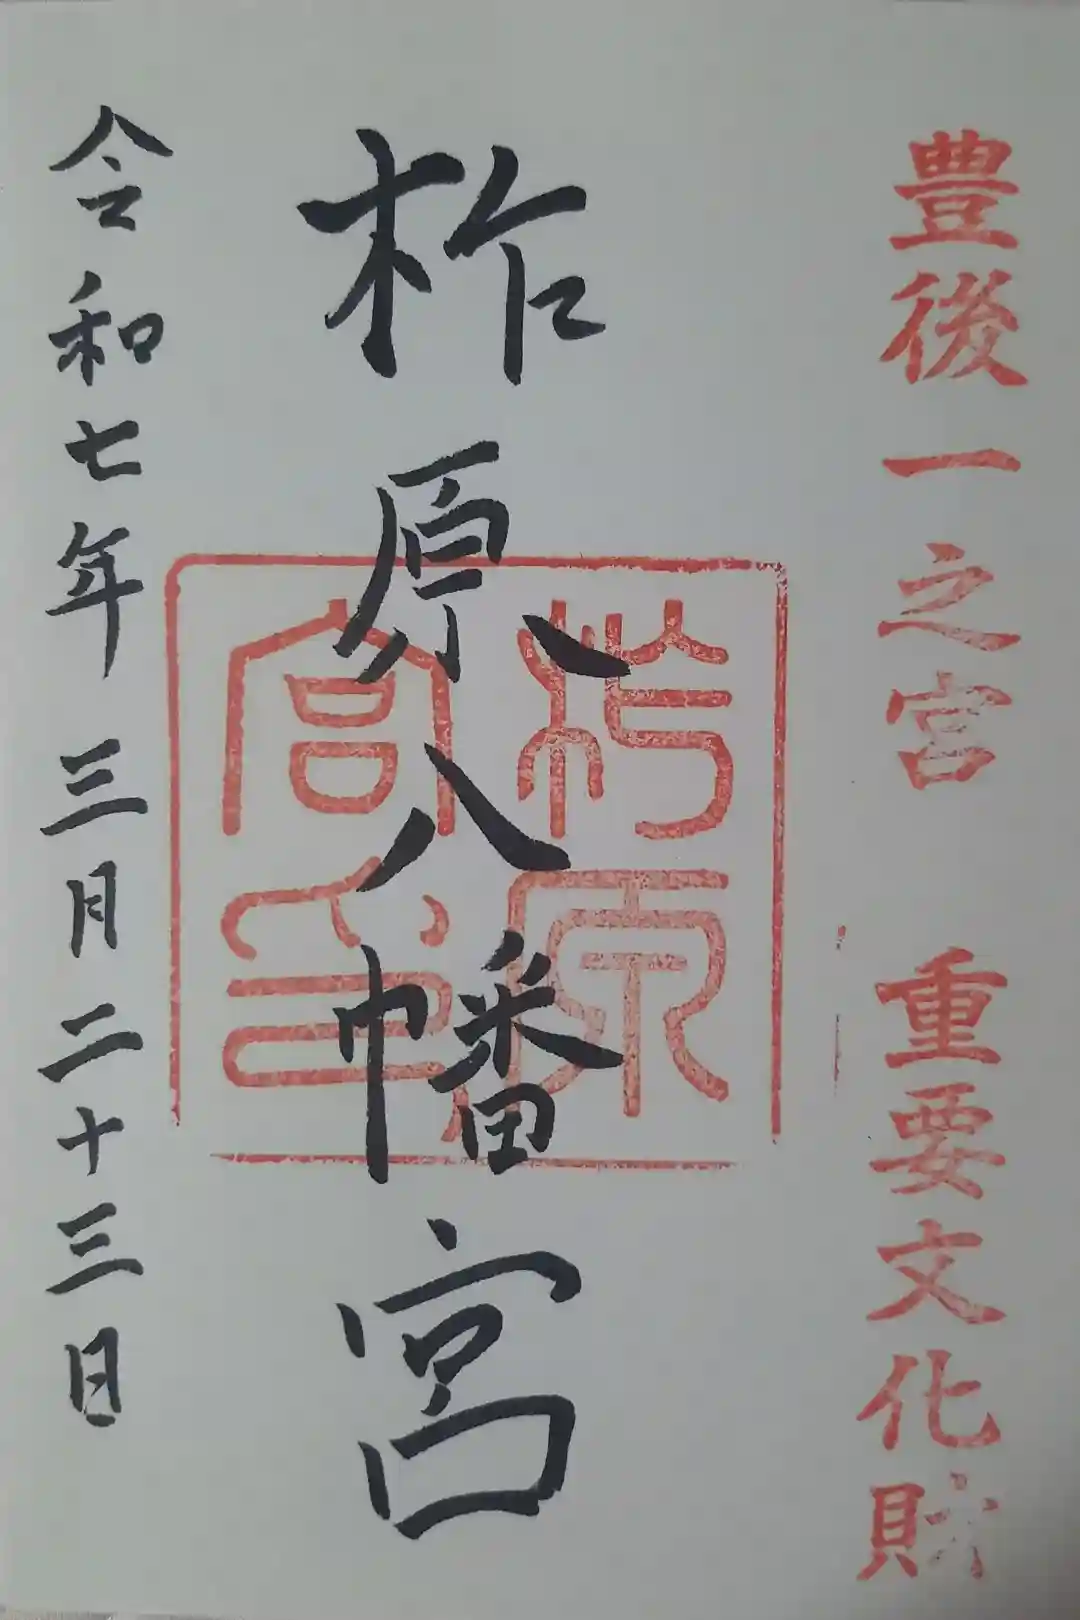 豊後一之宮 重要文化財
柞原八幡宮
柞原
宮印
令和七年 三月二十三日